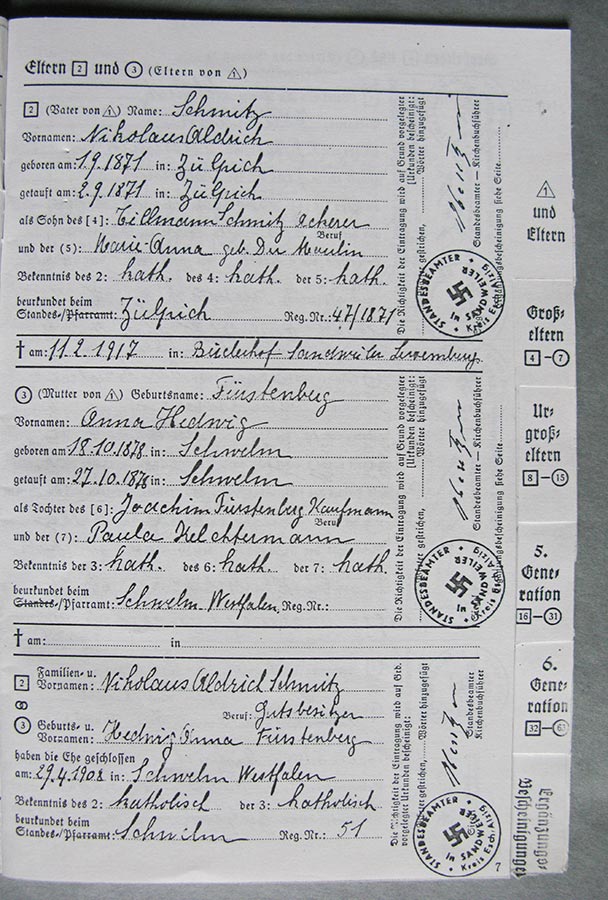 Eltern 2 und 3 (Eltern von 1)
2 (Vater von 1) Name: Schmitz
Vornamen: Nikolaus Aldrich
geboren am: 1.9.1871 in: Zülpich
getauft am: 2.9.1871 in: Zülpich
als Sohn des [4]: Tillmann Schmitz Ackerer
Beruf
und der (5): Marie-Anna geb. Du Moulin
Bekenntnis des 2: kath. des 4: kath. der 5: kath.
beurkundet beim
Standes-/Pfarramt: Zülpich Reg.Nr.: 47/1871
† am: 11.2.1917 in: Birelerhof Sandweiler Luxemburg
Die Richtigkeit der Eintragung wird auf Grund vorgelegter
Urkunden bescheinigt:
gestrichen, Wörter hinzugefügt
Standesbeamter – Kirchenbuchführer
bescheinigung siehe Seite
STANDESBEAMTER
in SANDWEILER
Kreis Esch/Alzig
3 (Mutter von 1) Geburtsname: Fürstenberg
Vornamen: Anna Hedwig
geboren am: 18.10.1878 in: Schwelm
getauft am: 27.10.1878 in: Schwelm
als Tochter des [6]: Joachim Fürstenberg Kaufmann
Beruf
und der (7): Paula Kelchtermann
Bekenntnis der 3: kath. des 6: kath. der 7: kath.
beurkundet beim
Standes-/Pfarramt: Schwelm Westfalen Reg.Nr.:
† am: in
Die Richtigkeit der Eintragung wird auf Grund vorgelegter
Urkunden bescheinigt:
gestrichen, Wörter hinzugefügt
Standesbeamter – Kirchenbuchführer
bescheinigung siehe Seite
STANDESBEAMTER
in SANDWEILER
Kreis Esch/Alzig
2 Familien- u.
Vornamen: Nikolaus Aldrich Schmitz
Beruf: Gutsbesitzer
3 Geburts- u.
Vornamen: Hedwig Anna Fürstenberg
haben die Ehe geschlossen
am: 29.4.1908 in: Schwelm Westfalen
Bekenntnis des 2: katholisch der 3: katholisch
beurkundet beim
Standes-/Pfarramt: Schwelm Reg.Nr.: 51
Die Richtigkeit der Eintragung wird auf Grd.
vorgelegter Urkunden bescheinigt:
gestrichen, Wörter hinzugefügt
Standesbeamter
Kirchenbuchführer
STANDESBEAMTER
in SANDWEILER
Kreis Esch/Alzig
7
1
und
Eltern
Groß-
eltern
4–7
Ur-
groß-
eltern
8–15
5.
Gene-
ration
16–31
6.
Gene-
ration
32–63
Ergänzungs-
Bescheinigungen